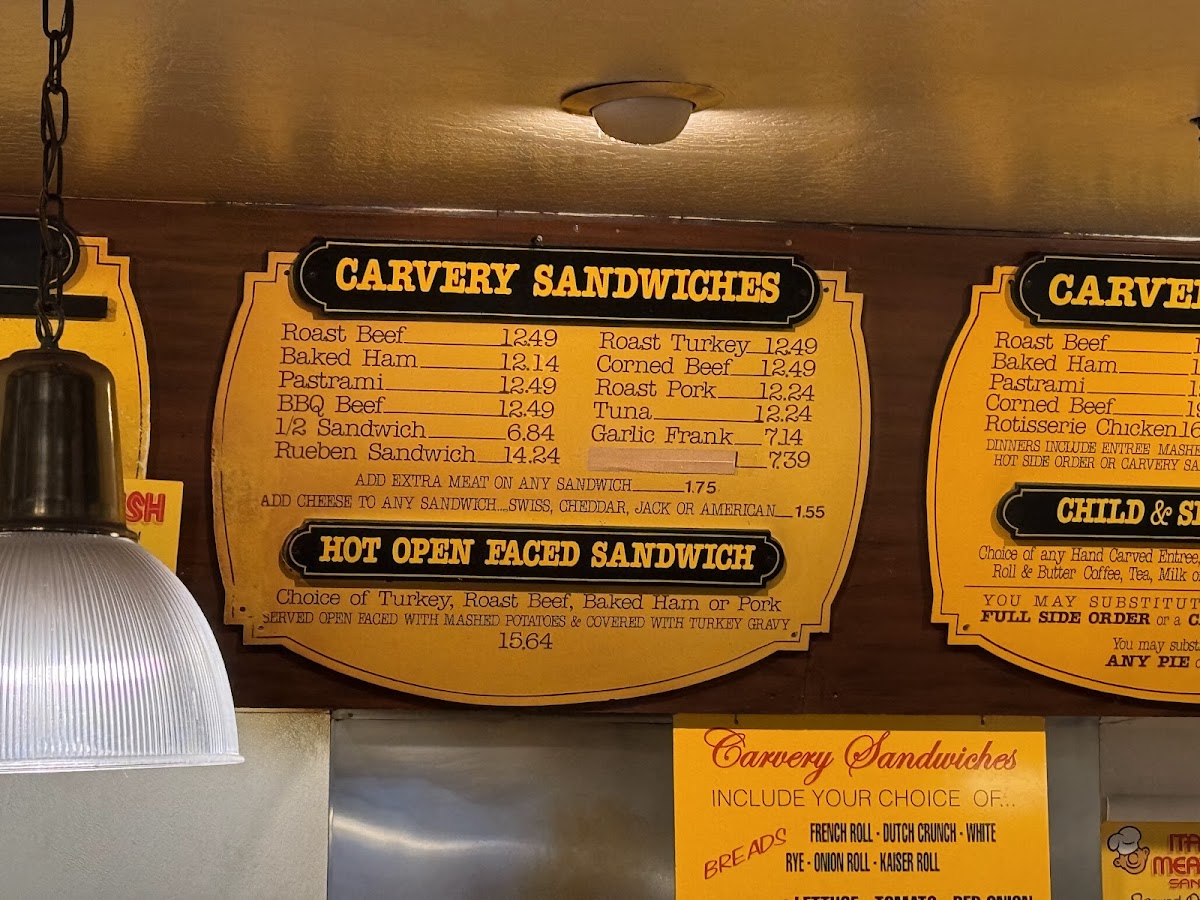 CARVERY SANDWICHES
Roast Beef 12.49
Baked Ham 12.14
Pastrami 12.49
BBQ Beef 12.49
1/2 Sandwich 6.84
Rueben Sandwich 14.24
Roast Turkey 12.49
Corned Beef 12.49
Roast Pork 12.24
Tuna 12.24
Garlic Frank 7.14
7.39
ADD EXTRA MEAT ON ANY SANDWICH 1.75
ADD CHEESE TO ANY SANDWICH....SWISS, CHEDDAR, JACK OR AMERICAN 1.55
HOT OPEN FACED SANDWICH
Choice of Turkey, Roast Beef, Baked Ham or Pork
SERVED OPEN FACED WITH MASHED POTATOES & COVERED WITH TURKEY GRAVY
15.64
Roast Beef
Baked Ham
Pastrami
Corned Beef
Rotisserie Chicken
DINNERS INCLUDE ENTREE
HOT SIDE ORDER OR CARVERY
CHILD &
Choice of any Hand Carved Entree,
Roll & Butter Coffee, Tea, Milk
YOU MAY
FULL SIDE ORDER or a
You may
ANY PIE
Carvery Sandwiches
INCLUDE YOUR CHOICE OF...
BREADS
FRENCH ROLL - DUTCH CRUNCH - WHITE
RYE - ONION ROLL - KAISER ROLL
LETTUCE - TOMATO - RED ONION